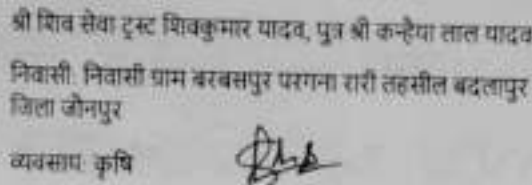 श्री शिव सेवा ट्रस्ट शिवकुमार यादव, पुत्र श्री कन्हैया लाल यादव
निवासी: निवासी ग्राम बरबसपुर परगना रारी तहसील बदलापुर
जिला जौनपुर
व्यवसाय: कृषि